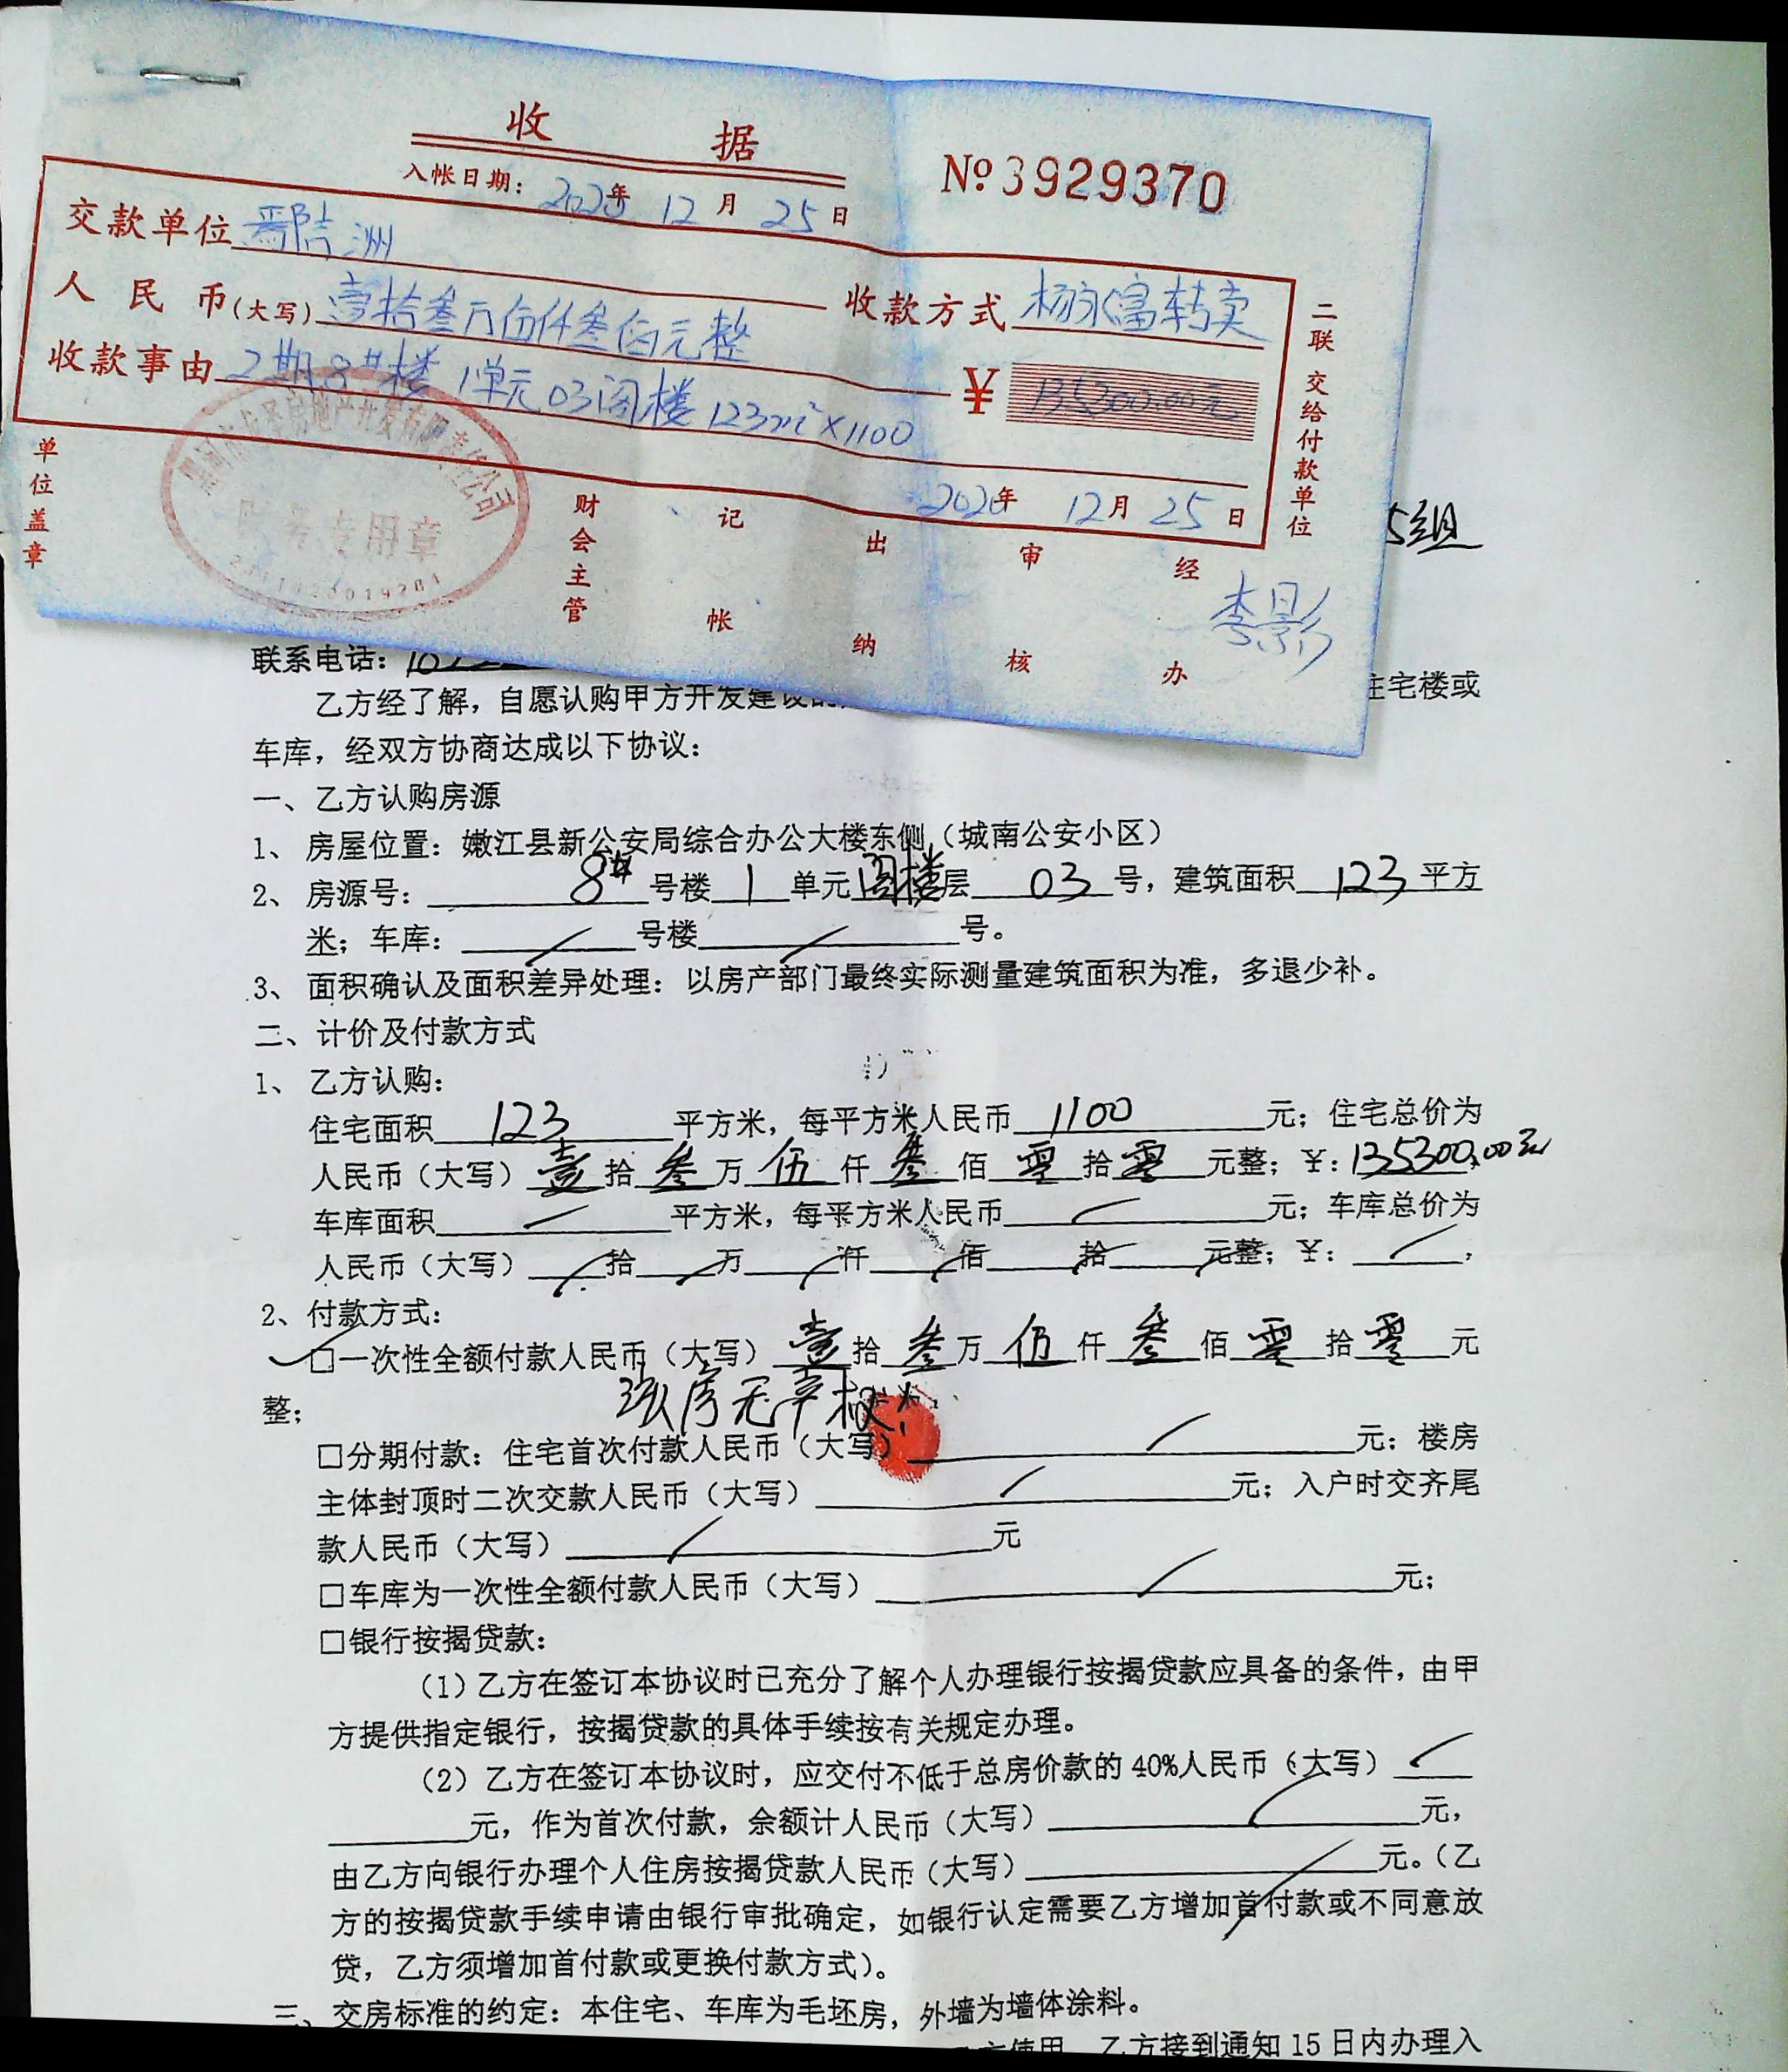 收 据
№3929370
入帐日期: 2020年 12月 25日
交款单位 洲
人民币(大写) 壹拾叁万伍仟叁佰元整
收款方式 杨永富转卖
收款事由 2期8#楼 1单元03阁楼123m²×1100
¥ 135300.00元
2020年 12月 25日
二联 交给付款单位
单位盖章
财务专用章
财会主管 记帐 出纳 审核 经办 李影
5组
联系电话:
乙方经了解,自愿认购甲方开发建设的 住宅楼或
车库,经双方协商达成以下协议:
一、乙方认购房源
1、房屋位置:嫩江县新公安局综合办公大楼东侧(城南公安小区)
2、房源号: 8# 号楼 1 单元 阁楼 层 03 号,建筑面积 123 平方
米;车库: / 号楼 / 号。
3、面积确认及面积差异处理:以房产部门最终实际测量建筑面积为准,多退少补。
二、计价及付款方式
1、乙方认购:
住宅面积 123 平方米,每平方米人民币 1100 元;住宅总价为
人民币(大写) 壹 拾 叁 万 伍 仟 叁 佰 零 拾 零 元整;¥:135300.00元
车库面积 / 平方米,每平方米人民币 / 元;车库总价为
人民币(大写) / 拾 / 万 / 仟 / 佰 / 拾 / 元整;¥: / ,
2、付款方式:
☑一次性全额付款人民币(大写) 壹 拾 叁 万 伍 仟 叁 佰 零 拾 零 元
整;
该房无产权!
□分期付款:住宅首次付款人民币(大写) / 元;楼房
主体封顶时二次交款人民币(大写) / 元;入户时交齐尾
款人民币(大写) / 元
□车库为一次性全额付款人民币(大写) / 元;
□银行按揭贷款:
(1)乙方在签订本协议时已充分了解个人办理银行按揭贷款应具备的条件,由甲
方提供指定银行,按揭贷款的具体手续按有关规定办理。
(2)乙方在签订本协议时,应交付不低于总房价款的40%人民币(大写) /
元,作为首次付款,余额计人民币(大写) / 元,
由乙方向银行办理个人住房按揭贷款人民币(大写) / 元。(乙
方的按揭贷款手续申请由银行审批确定,如银行认定需要乙方增加首付款或不同意放
贷,乙方须增加首付款或更换付款方式)。
三、交房标准的约定:本住宅、车库为毛坯房,外墙为墙体涂料。
方使用,乙方接到通知15日内办理入